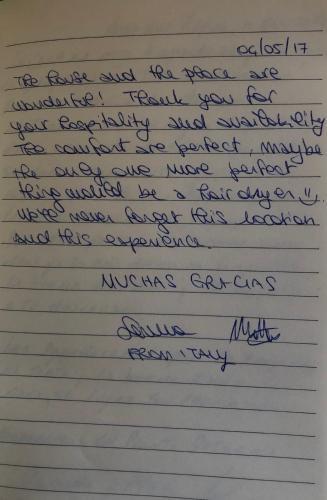 04/05/17
The house and the place are
wonderful! Thank you for
your hospitality and availability
The comfort are perfect, maybe
the only one more perfect
thing would be a hairdryer :)
We're never forget this location
and this experience.
MUCHAS GRACIAS
FROM ITALY